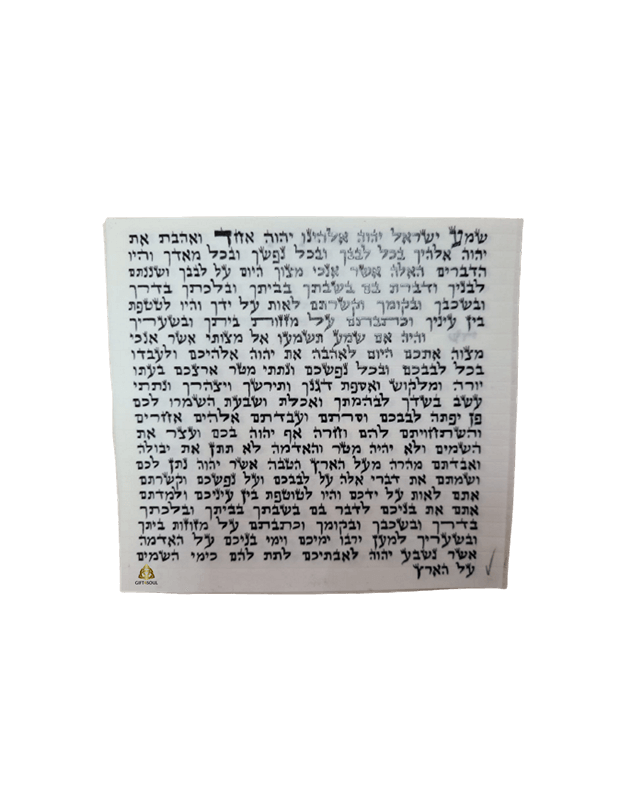 שמע ישראל יהוה אלהינו יהוה אחד ואהבת את
יהוה אלהיך בכל לבבך ובכל נפשך ובכל מאדך והיו
הדברים האלה אשר אנכי מצוך היום על לבבך ושננתם
לבניך ודברת בם בשבתך בביתך ובלכתך בדרך
ובשכבך ובקומך וקשרתם לאות על ידך והיו לטטפת
בין עיניך וכתבתם על מזוזות ביתך ובשעריך
והיה אם שמע תשמעו אל מצותי אשר אנכי
מצוה אתכם היום לאהבה את יהוה אלהיכם ולעבדו
בכל לבבכם ובכל נפשכם ונתתי מטר ארצכם בעתו
יורה ומלקוש ואספת דגנך ותירשך ויצהרך ונתתי
עשב בשדך לבהמתך ואכלת ושבעת השמרו לכם
פן יפתה לבבכם וסרתם ועבדתם אלהים אחרים
והשתחויתם להם וחרה אף יהוה בכם ועצר את
השמים ולא יהיה מטר והאדמה לא תתן את יבולה
ואבדתם מהרה מעל הארץ הטבה אשר יהוה נתן לכם
ושמתם את דברי אלה על לבבכם ועל נפשכם וקשרתם
אתם לאות על ידכם והיו לטוטפת בין עיניכם ולמדתם
אתם את בניכם לדבר בם בשבתך בביתך ובלכתך
בדרך ובשכבך ובקומך וכתבתם על מזוזות ביתך
ובשעריך למען ירבו ימיכם וימי בניכם על האדמה
אשר נשבע יהוה לאבתיכם לתת להם כימי השמים
על הארץ